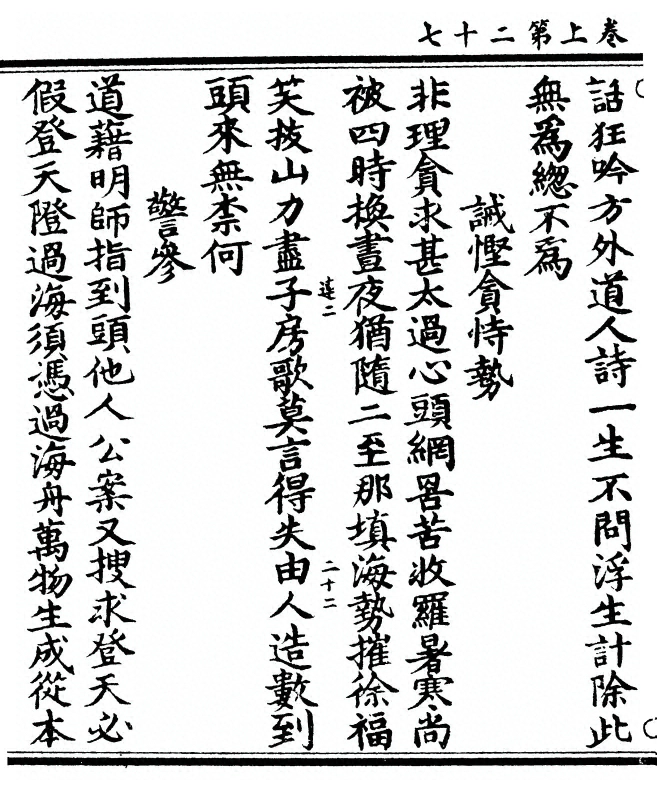 卷上第二十七
話狂吟方外道人詩一生不問浮生計除此
無爲緫不爲
誡慳貪恃勢
非理貪求甚太過心頭網罟苦收羅暑寒尚
被四時換晝夜猶隨二至那填海勢摧徐福
蓮二
二十二
笑拔山力盡子房歌莫言得失由人造數到
頭來無柰何
警參
道藉明師指到頭他人公案又搜求登天必
假登天隥過海須憑過海舟萬物生成從本